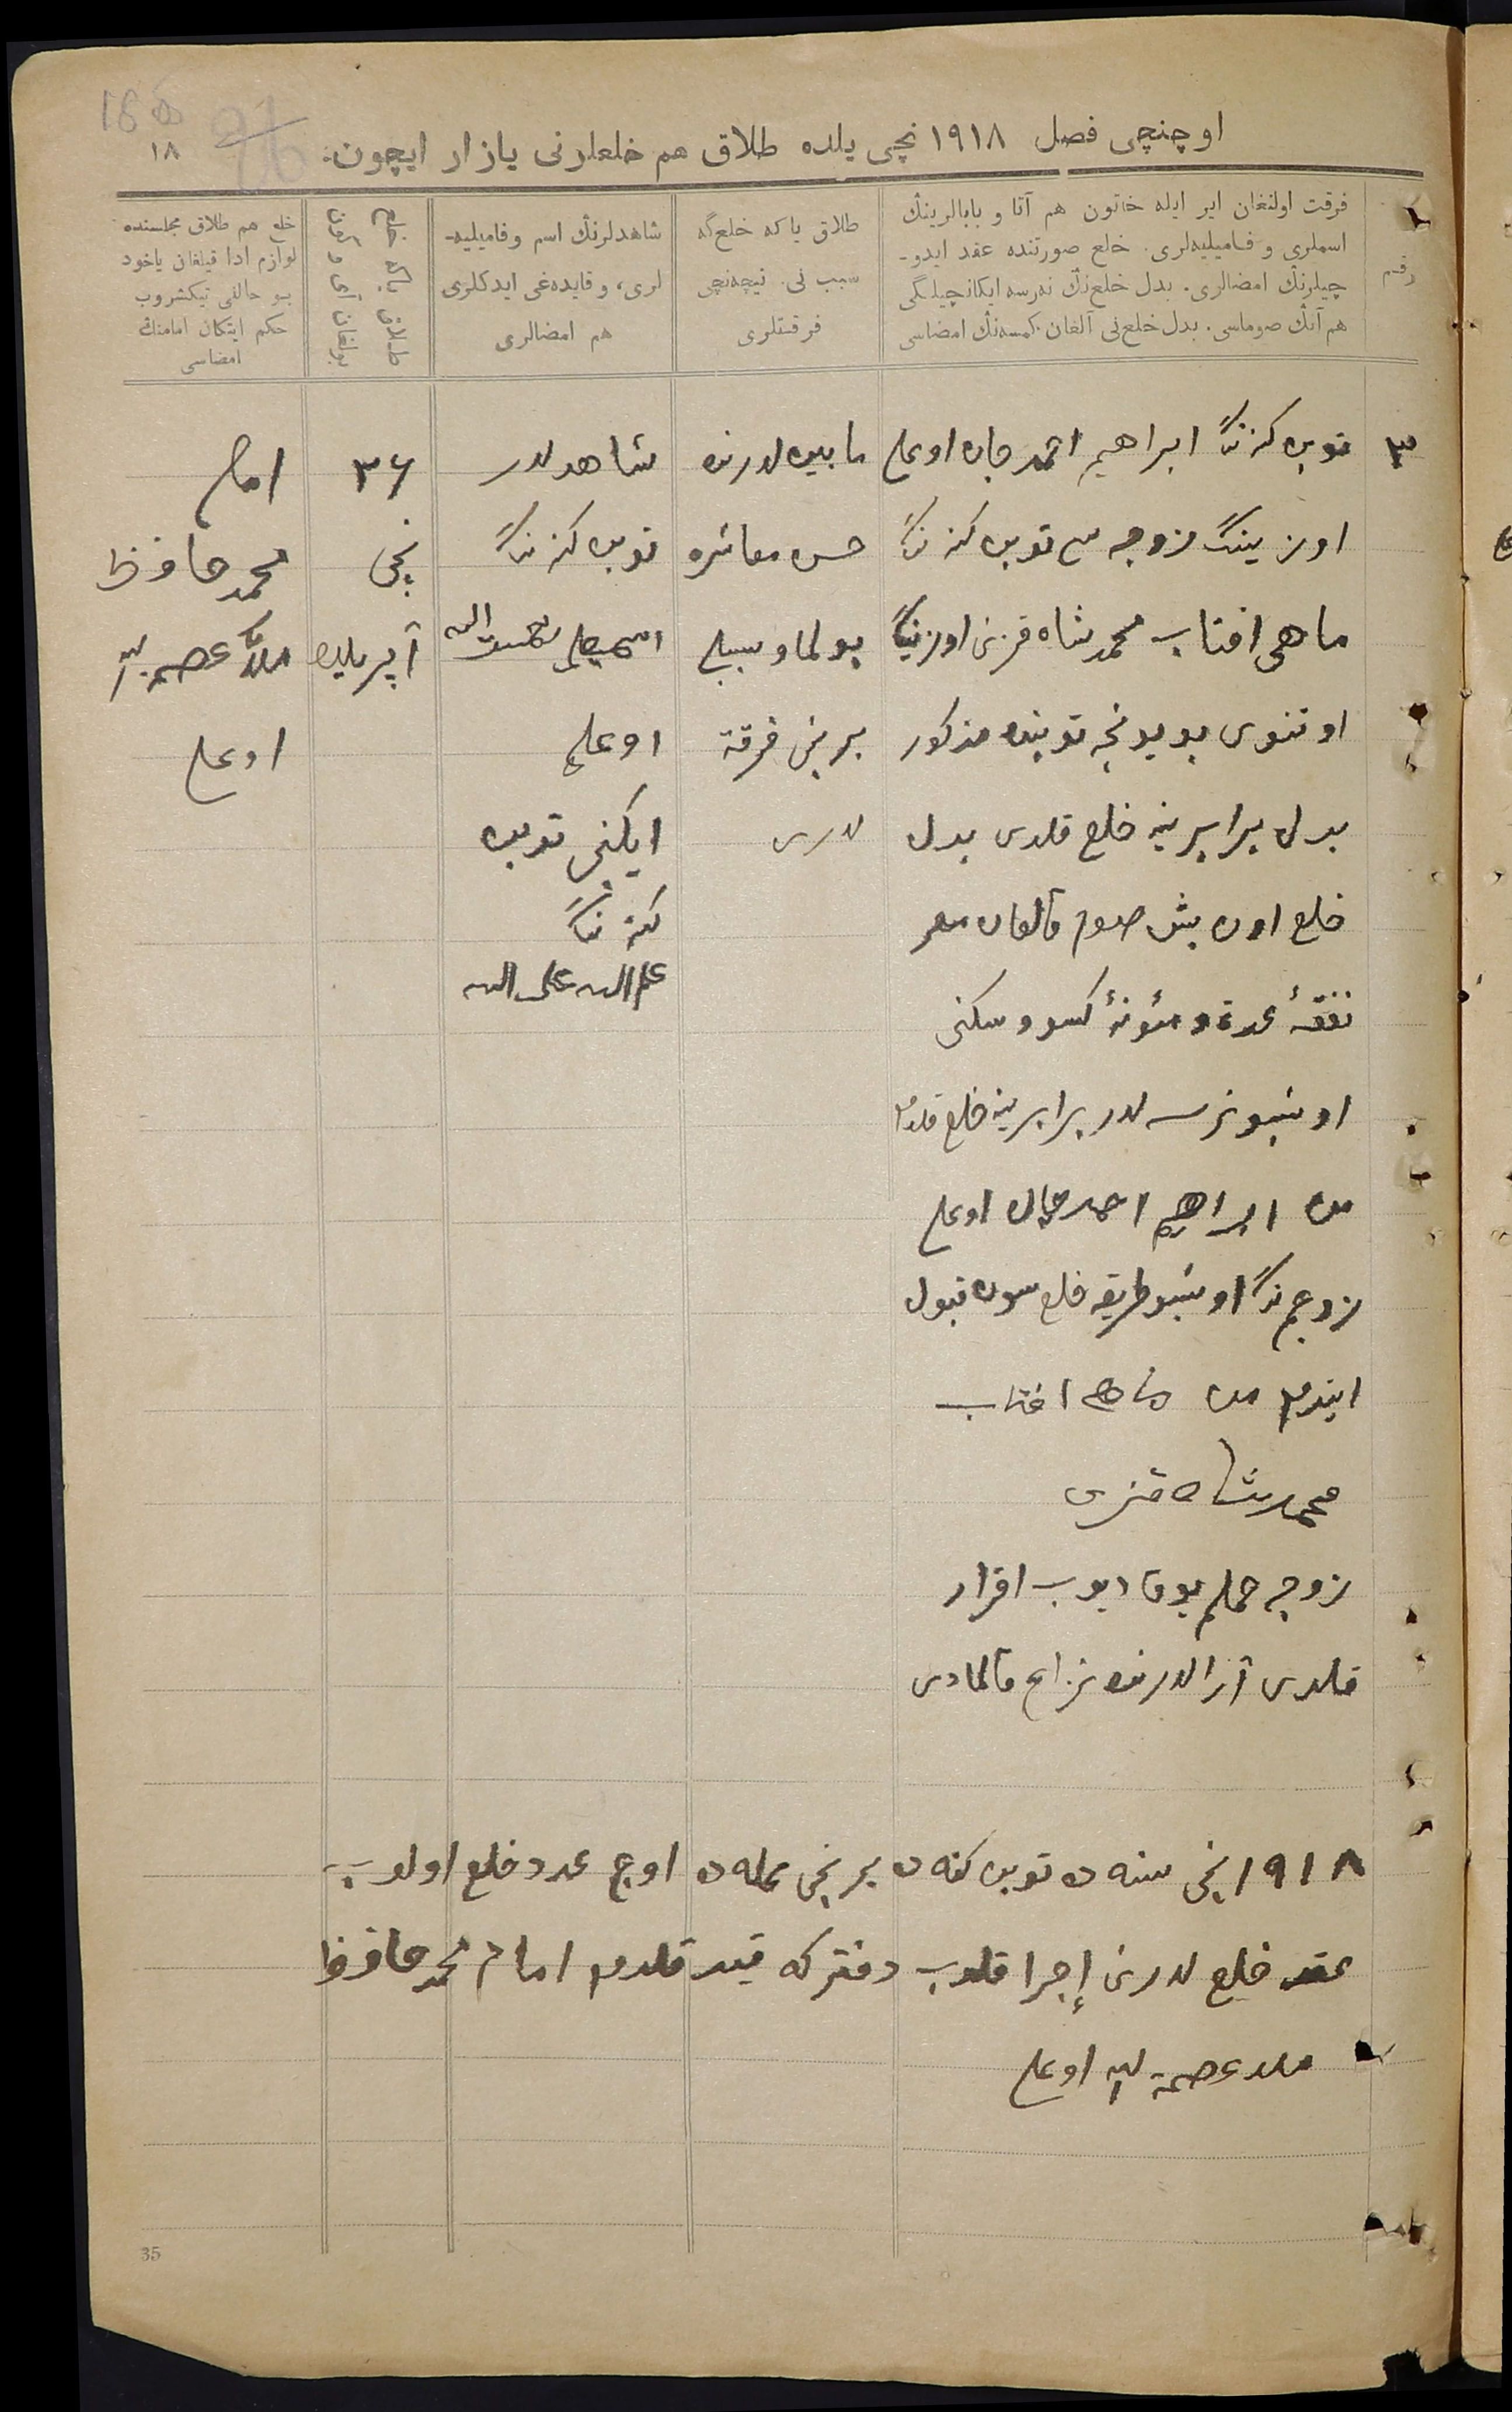 اوچنچی فصل ۱۹۱۸ نچی یلده طلاق هم خلعلرنی یازار ایچون.
۱۸
رقم
فرقت اولنغان ایر ایله خاتون هم آتا و بابالرینڭ
اسملری و فامیلیه‌لری. خلع صورتنده عقد ایدو-
چیلرنڭ امضالری. بدل خلع‌نڭ نه‌رسه ایکانچیلگی
هم آنڭ صوماسی. بدل خلع‌نی آلغان کمسه‌نڭ امضاسی
طلاق یا که خلع‌گه
سبب نی. نیچه‌نچی
فرقتلری
شاهدلرنڭ اسم و فامیلیه-
لری، و قایده‌غی ایدکلری
هم امضالری
طلاق یاکه خلع
بولغان آی و کون
خلع هم طلاق مجلسنده
لوازم ادا قیلغان یاخود
بو حالنی تیکشروب
حکم ایتکان امامنڭ
امضاسی
۳
توبن کنه‌نڭ ابراهیم احمدجان اوغلی
اوزینڭ زوجه سی توبن کنه‌نڭ
ماهی افتاب محمدشاه قزینی اوزینڭ
اوتنوی بویونچه توبنده مذکور
بدل برابرینه خلع قلدی بدل
خلع اون بش صوم قالغان مهر
نفقهٔ عدة و مئونهٔ کسوه سکنی
اوشبو نرسه لر برابرینه خلع قلدم
من ابراهیم احمدجان اوغلی
زوجم‌نڭ اوشبو طریقه خلع سون قبول
ایتدم من ماهی افتاب
محمدشاه قزی
زوجه حملم یوق دیوب اقرار
قلدی آرالرنده نزاع قالمادی
مابین لرنده
حسن معاشره
بولماو سببلی
برنچی فرقة
لری
شاهدلر
توبن کنه‌نڭ
اوغلی
ایکنچی توبن
کنه‌نڭ
۲۶
نچی
آپریلده
امام
محمد حافظ
ملا عصمة الله
اوغلی
۱۹۱۸ نچی سنه ده توبن کنه ده برنچی محله ده اوچ عدد خلع اولوب
عقد خلع لرنی إجرا قلوب دفترکه قید قلدم امام محمد حافظ
ملا عصمة الله اوغلی
35